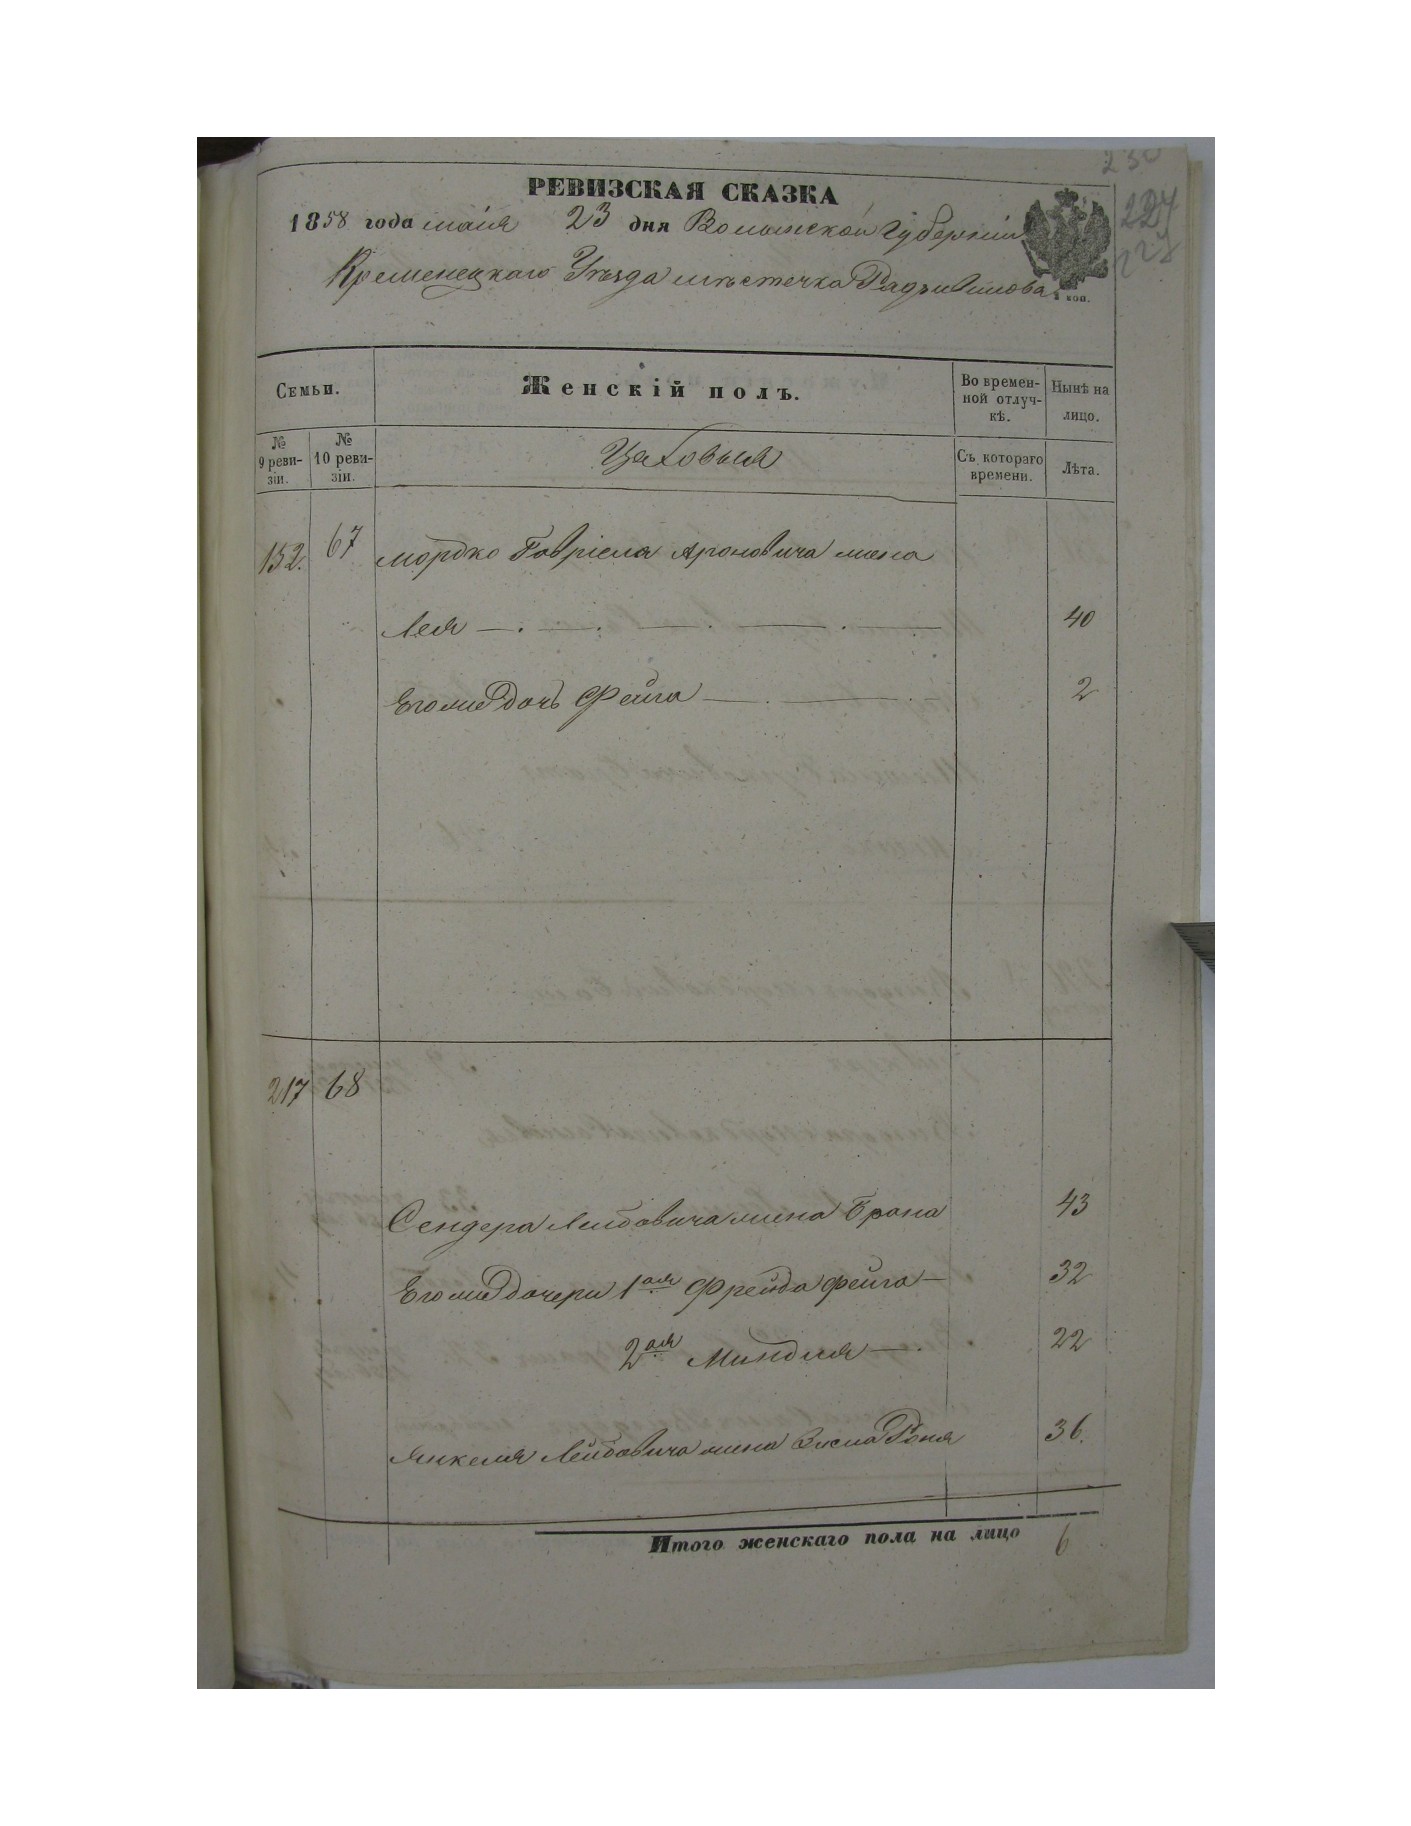 230
РЕВИЗСКАЯ СКАЗКА
224
1858 года маія 23 дня Волынской Губерніи
227
Кременецкаго Уѣзда мѣстечка Радзивилова
коп.
Семьи.
Женскій полъ.
Во времен-
ной отлуч-
кѣ.
Нынѣ на
лицо.
№
9 реви-
зіи.
№
10 реви-
зіи.
Цеховыя
Съ котораго
времени.
Лѣта.
152. 67 Мордко Гавріеля Ароновича жена
Лея 40
Его же дочь Фейга 2
217 68
Сендера Лейбовича жена Брана 43
Его же дочери 1ая Фрейда Фейга 32
2ая Миндля 22
Янкеля Лейбовича жена Зисля Роня 36.
Итого женскаго пола на лицо 6